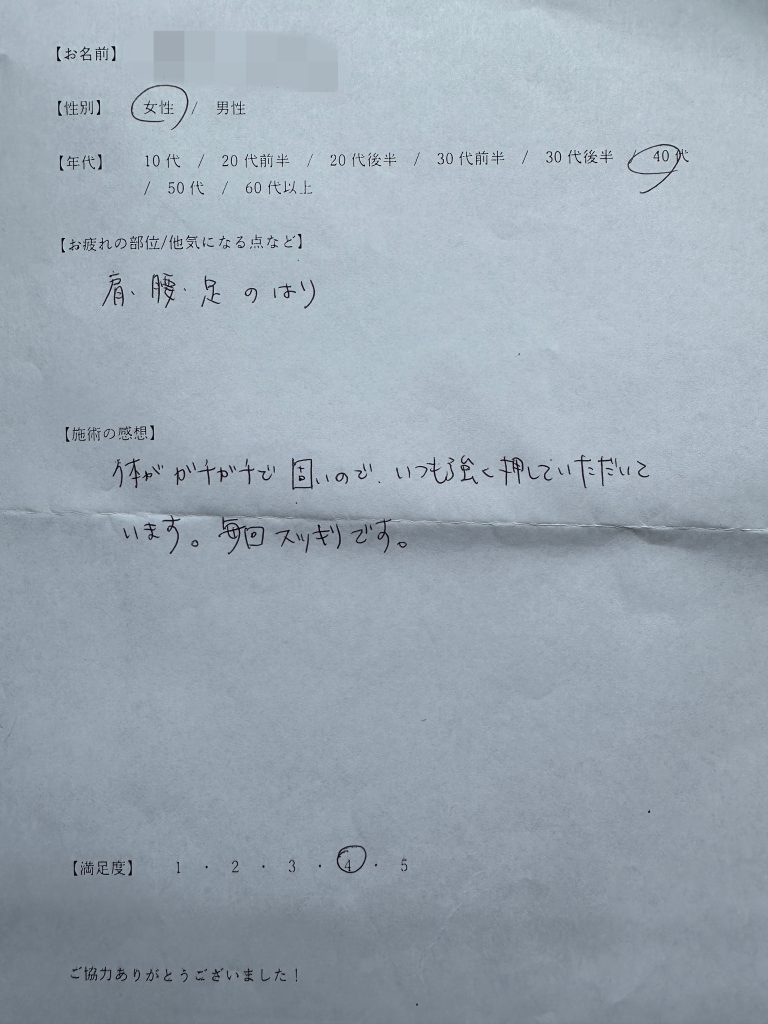 【お名前】
【性別】 女性 / 男性
【年代】 10代 / 20代前半 / 20代後半 / 30代前半 / 30代後半 / 40代
/ 50代 / 60代以上
【お疲れの部位/他気になる点など】
肩・腰・足のはり
【施術の感想】
体がガチガチで固いので、いつも強く押していただいて
います。毎回スッキリです。
【満足度】 1 ・ 2 ・ 3 ・ 4 ・ 5
ご協力ありがとうございました！